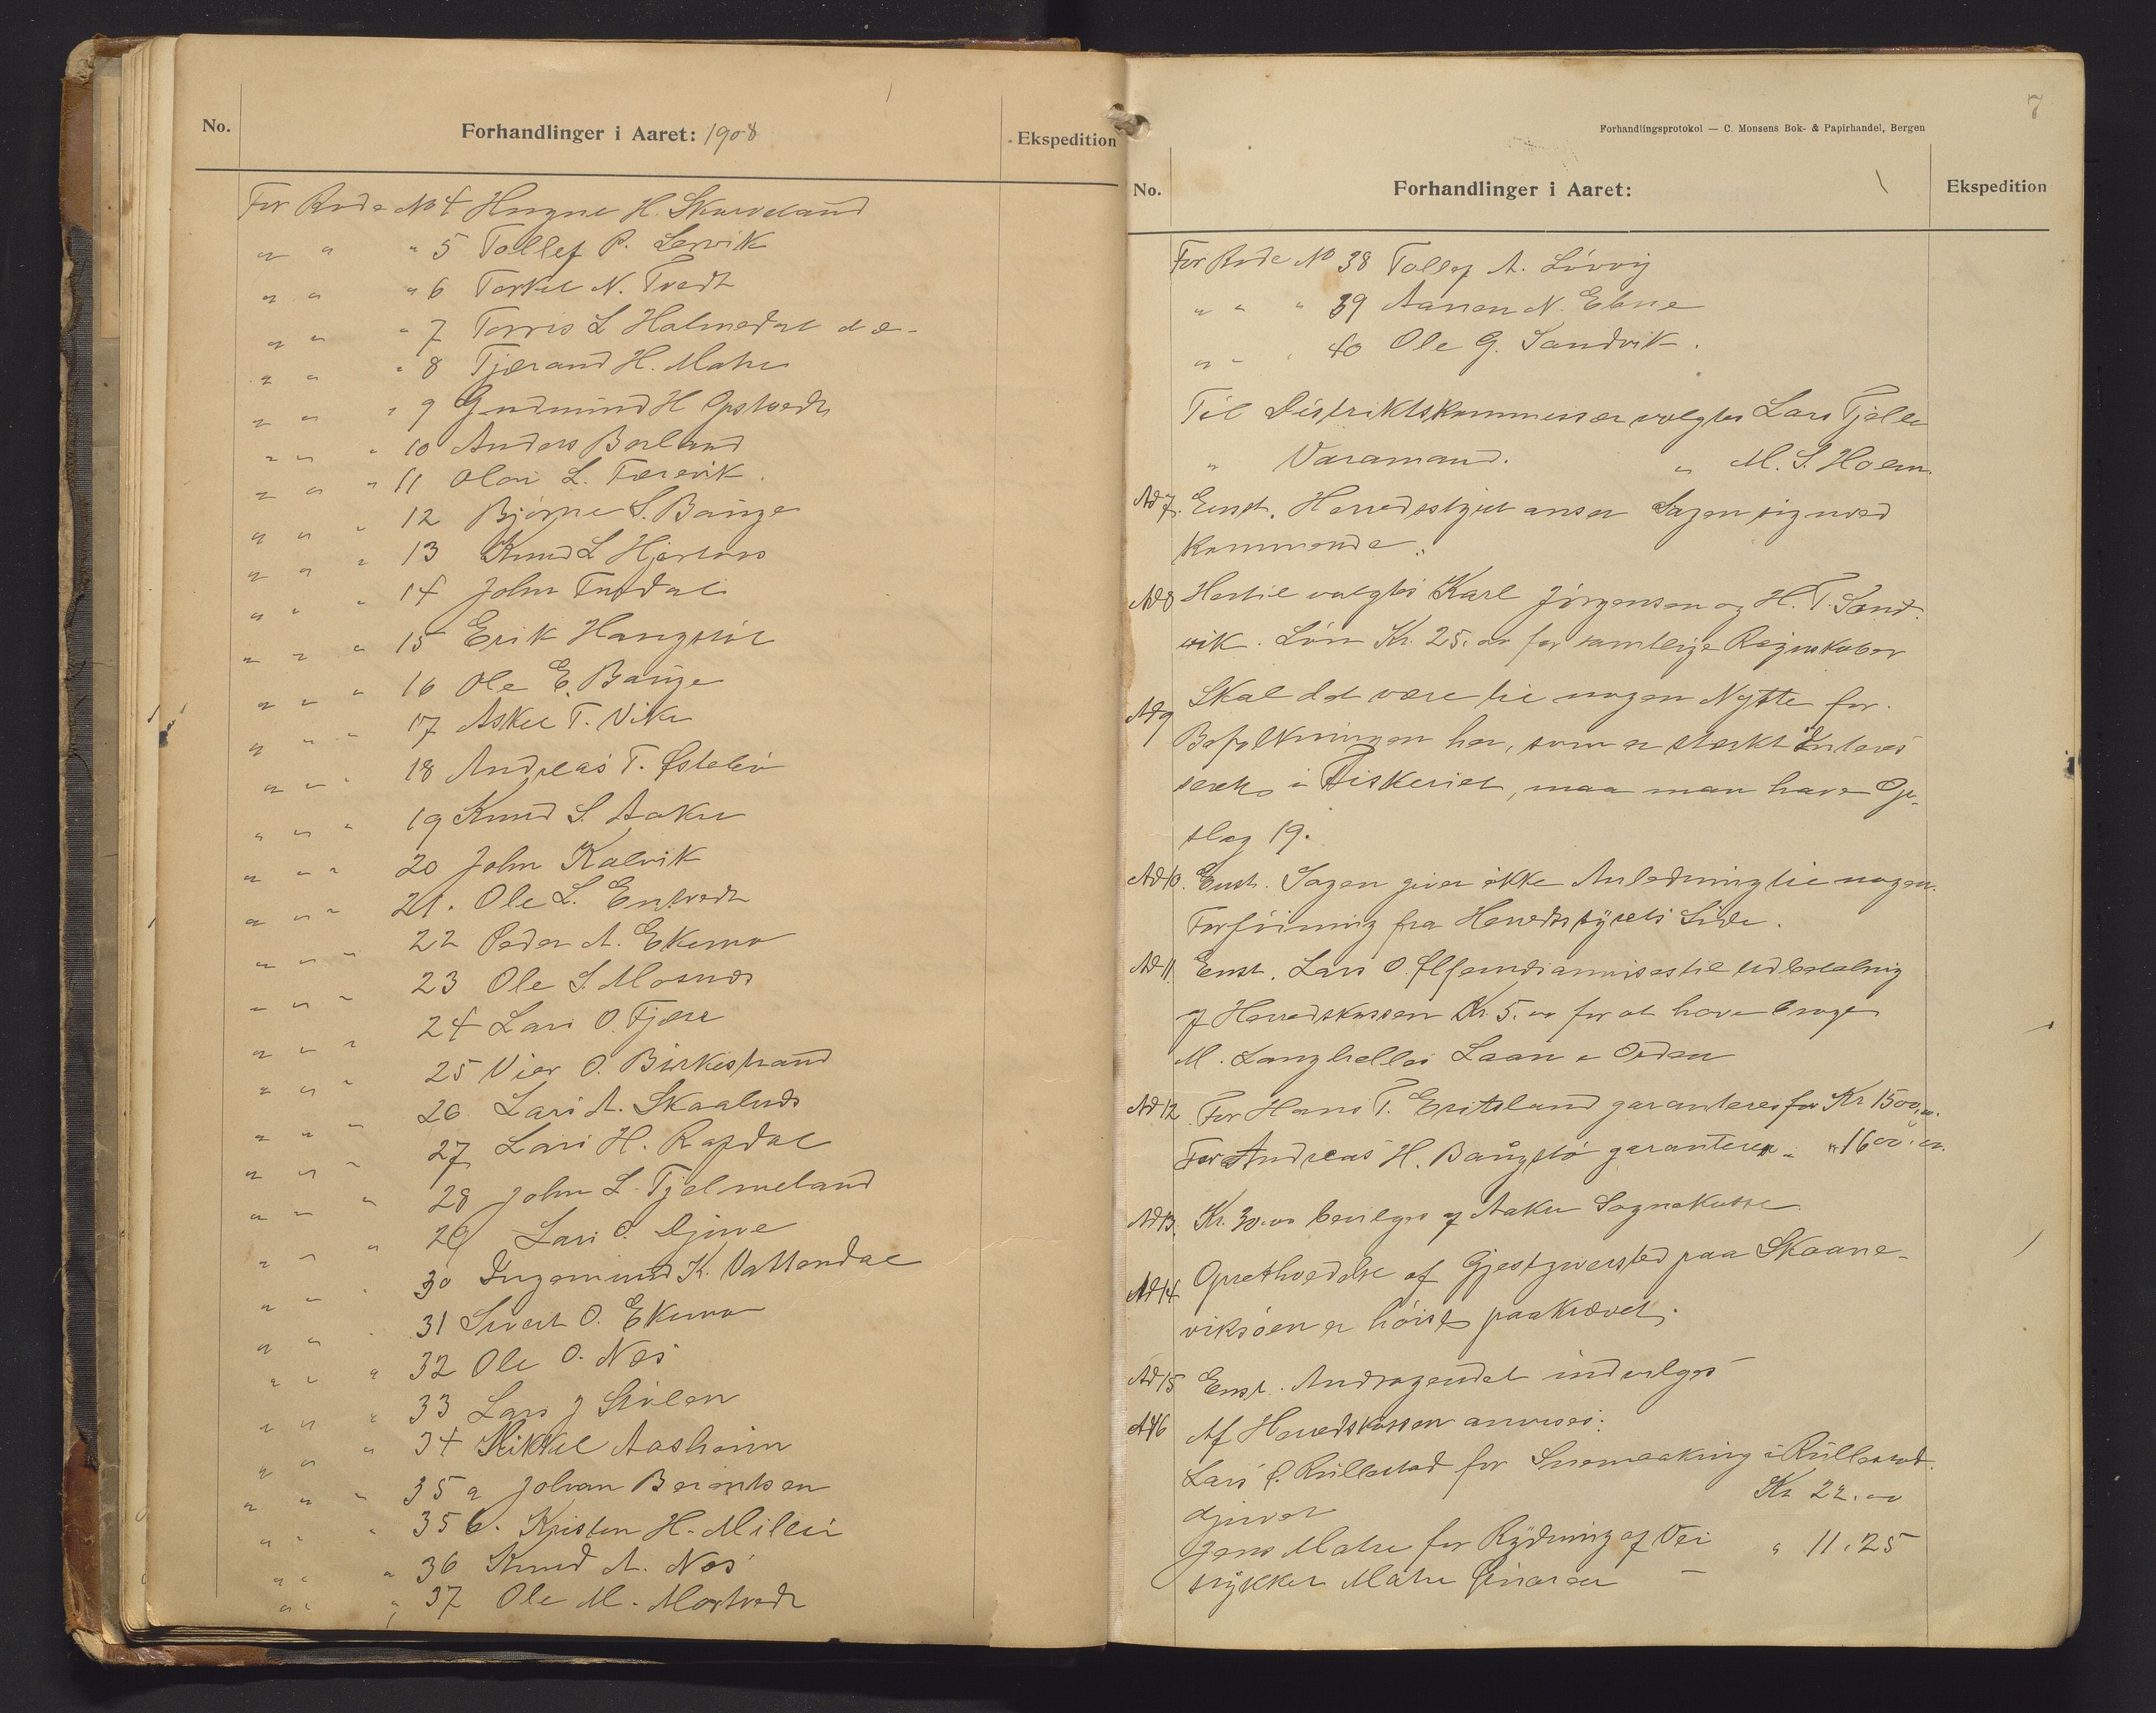 No.
Forhandlinger i Aaret: 1908
Ekspedition
For Rode No 4 Haagne H. Skarveland
" " " 5 Tollef P. Lervik
" " " 6 Torkel N. Tvedt
" " " 7 Torris L Halmedal d æ-
" " " 8 Tjærand H. Matre
" " " 9 Gudmund H Opstvedt
" " " 10 Anders Børland
" " " 11 Olai L. Færevik.
" " " 12 Bjørne S. Bauge
" " " 13 Knud L Hjertøs
" " " 14 John Tufdal
" " " 15 Erik Hangstøl
" " " 16 Ole E. Bauge
" " " 17 Askel T. Vike
" " " 18 Andreas T. Østebø
" " " 19 Knud S. Aakre
" " " 20 John Kalvik
" " " 21. Ole L. Entvedt
" " " 22 Peder A. Ekemo
" " " 23 Ole S. Mosnes
" " " 24 Lars O. Fjære
" " " 25 Vier O. Birkestrand
" " " 26 Lars A. Skaalnes
" " " 27 Lars H. Rafdal
" " " 28 John L. Tjelmeland
" " " 29 Lars O. Djuve
" " " 30 Ingemund K. Vattendal
" " " 31 Sivert O. Ekemo
" " " 32 Ole O. Næs
" " " 33 Lars J Stølen
" " " 34 Mikkel Aasheim
" " " 35 a Johan Berentsen
" " " 35 b. Kristen H. Milli
" " " 36 Knud A. Næs
" " " 37 Ole M. Mortvedt
7
Forhandlingsprotokol — C. Monsens Bok- & Papirhandel, Bergen
No.
Forhandlinger i Aaret:
Ekspedition
For Rode No 38 Tollef A. Løvvig
" " " 39 Aanen N. Ebne
" " " 40 Ole G. Sandvik.
Til Distriktskommissær valgtes Lars Fjelle
" Varamand. " M. S. Holm.
Ad 7. Enst. Herredsstyret anser Sagen sig uved
kommende.
Ad 8 Hertil valgtes Karl Jørgensen og H. T. Sand-
vik. Løn Kr. 25.00 for samtlige Regnskaber
Ad 9 Skal det være til nogen Nytte for
Befolkningen her, som er stærkt interes
seret i Fiskeriet, maa man have Op-
slag 19.
Ad 10. Enst. Sagen giver ikke Anledning til nogen
Forføining fra Herredsstyrets Side.
Ad 11 Enst. Lars O. Ølfernes anvises til Udbetaling
af Herredskassen Kr. 5.00 for at have bragt
M. Langhelles Laan i Orden
Ad 12 For Hans T. Eritsland garanteres for Kr 1500,00.
For Andreas H. Baugstø garanteres " " 1600.00.
Ad 13. Kr. 30.00 bevilges af Aakre Sognekasse
Ad 14 Opretholdelse af Gjestgiversted paa Skaane-
viksøen er høist paakrævet.
Ad 15 Enst. Andragendet indvilges
Ad 16 Af Herredskassen anvises:
Lars P. Rullestad for Snemaaking i Rullestad-
djuvet Kr. 22.00
Jens Matre for Rydning af Vei " 11.25
stykket Matre